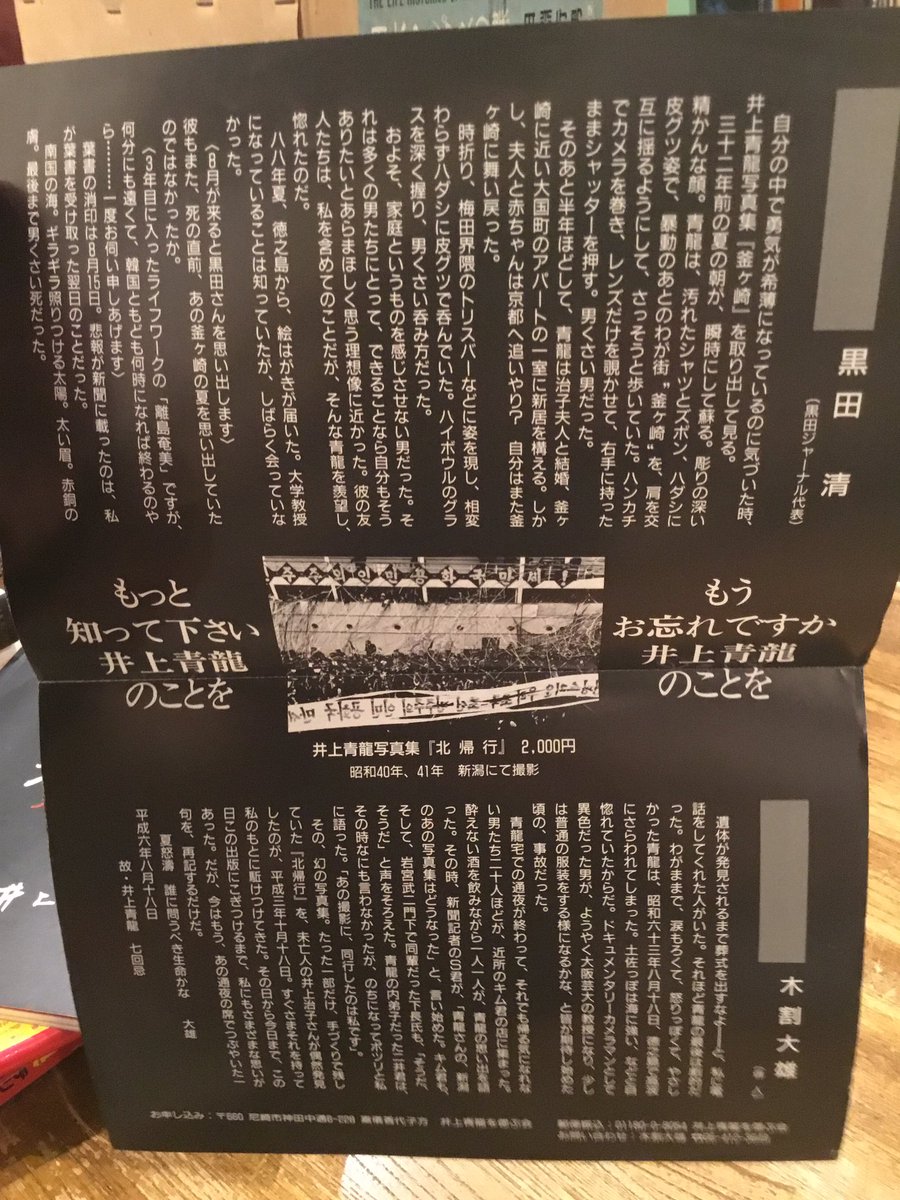 THE LIFE HISTORIES
黒田 清
(黒田ジャーナル代表)
自分の中で勇気が希薄になっているのに気づいた時、
井上青龍写真集『釜ヶ崎』を取り出して見る。
三十二年前の夏の朝が、瞬時にして蘇る。彫りの深い
精かんな顔。青龍は、汚れたシャツとズボン、ハダシに
皮グツ姿で、暴動のあとのわが街“釜ヶ崎”を、肩を交
互に揺るようにして、さっそうと歩いていた。ハンカチ
でカメラを巻き、レンズだけを覗かせて、右手に持った
ままシャッターを押す。男くさい男だった。
そのあと半年ほどして、青龍は治子夫人と結婚、釜ヶ
崎に近い大国町のアパートの一室に新居を構える。しか
し、夫人と赤ちゃんは京都へ追いやり? 自分はまた釜
ヶ崎に舞い戻った。
時折り、梅田界隈のトリスバーなどに姿を現し、相変
わらずハダシに皮グツで呑んでいた。ハイボウルのグラ
スを深く握り、男くさい呑み方だった。
およそ、家庭というものを感じさせない男だった。そ
れは多くの男たちにとって、できることなら自分もそう
ありたいとあらまほしく思う理想像に近かった。彼の友
人たちは、私を含めてのことだが、そんな青龍を羨望し、
惚れたのだ。
八八年夏、徳之島から、絵はがきが届いた。大学教授
になっていることは知っていたが、しばらく会っていな
かった。
〈8月が来ると黒田さんを思い出します〉
彼もまた、死の直前、あの釜ヶ崎の夏を思い出していた
のではなかったか。
〈3年目に入ったライフワークの「離島奄美」ですが、
何分にも遠くて、韓国ともども何時になれば終わるのや
ら………一度お伺い申しあげます〉
葉書の消印は8月15日。悲報が新聞に載ったのは、私
が葉書を受け取った翌日のことだった。
南国の海。ギラギラ照りつける太陽。太い眉。赤銅の
膚。最後まで男くさい死だった。
もう
お忘れですか
井上青龍
のことを
もっと
知って下さい
井上青龍
のことを
주주의인민공화국만세!
井上青龍写真集『北 帰 行』 2,000円
昭和40年、41年 新潟にて撮影
木割大雄
(俳人)
遺体が発見されるまで葬式を出すなよ――と、私に電
話をしてくれた人がいた。それほど青龍の最後は劇的だ
った。わがままで、涙もろくて、怒りっぽくて、やさし
かった青龍は、昭和六十三年八月十八日、徳之島で高波
にさらわれてしまった。土佐っぽは海に強い、などと自
惚れていたからだ。ドキュメンタリーカメラマンとして
異色だった男が、ようやく大阪芸大の教授になり、少し
は普通の服装をする様になるかな、と誰か期待し始めた
頃の、事故だった。
青龍宅での通夜が終わって、それでも帰る気になれな
い男たち二十人ほどが、近所のキム君の店に集まった。
酔えない酒を飲みながら一人一人が、青龍の思い出を語
った。その時、新聞記者のS君が、「青龍さんの、新潟
のあの写真集はどうなった」と、言い始めた。キム君も、
そして、岩宮武二門下で同輩だった下長氏も、「そうだ、
そうだ」と声をそろえた。青龍の内弟子だった二井君は、
その時なにも言わなかったが、のちになってポツリと私
に語った。「あの撮影に、同行したのは私です。」
その、幻の写真集。たった一部だけ、手づくりで残し
ていた『北帰行』を、未亡人の井上治子さんが偶然発見
したのが、平成三年十月十八日。すぐさまそれを持って
私のもとに駆けつけてきた。その日から今日まで、この
日この出版にこぎつけるまで、私にもさまざまな思いが
あった。だが、今はもう、あの通夜の席でつぶやいた一
句を、再記するだけだ。
夏怒濤 誰に問うべき生命かな 大雄
平成六年八月十八日
故・井上青龍 七回忌
お申し込み:〒660 尼崎市神田中通6-228 香代子方 井上青龍を偲ぶ会
郵便振込:01190-9-8054 井上青龍を偲ぶ会
お問い合わせ:木割大雄